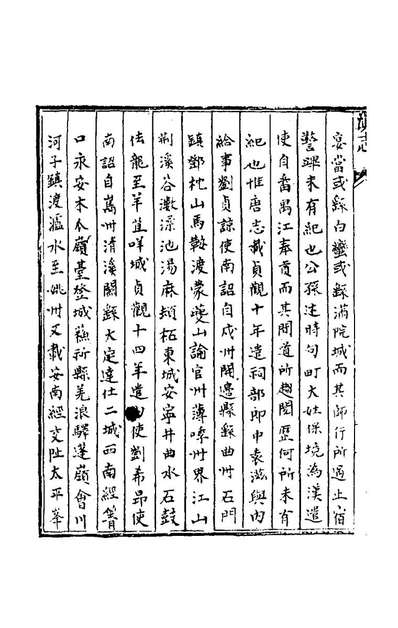 滇志
宴當或繇白蠻或繇滴院城而其師行所過止宿
警蹕未有紀也公孫述時句町大姓保境為漢遣
使自番禺江奉貢而其間道所趨閱歷何所未有
紀也惟唐志載貞觀十年遣祠部郎中袁滋與內
給事劉貞諒使南詔自戎州開邊縣繇曲州石門
鎮鄧枕山馬鞍渡蒙夔山諭官州薄哮州界江山
荊溪谷㶟渌池湯麻頓柘東城安寧井曲水石鼓
佉龍至羊苴咩城貞觀十四年遣內使劉希昂使
南詔自嶲州清溪關繇大定達仕二城西南經箐
口永安木瓜嶺臺登城蘇祁縣羌浪驛蓬嶺會川
河子鎮渡瀘水至姚州又載安南經交阯太平峯